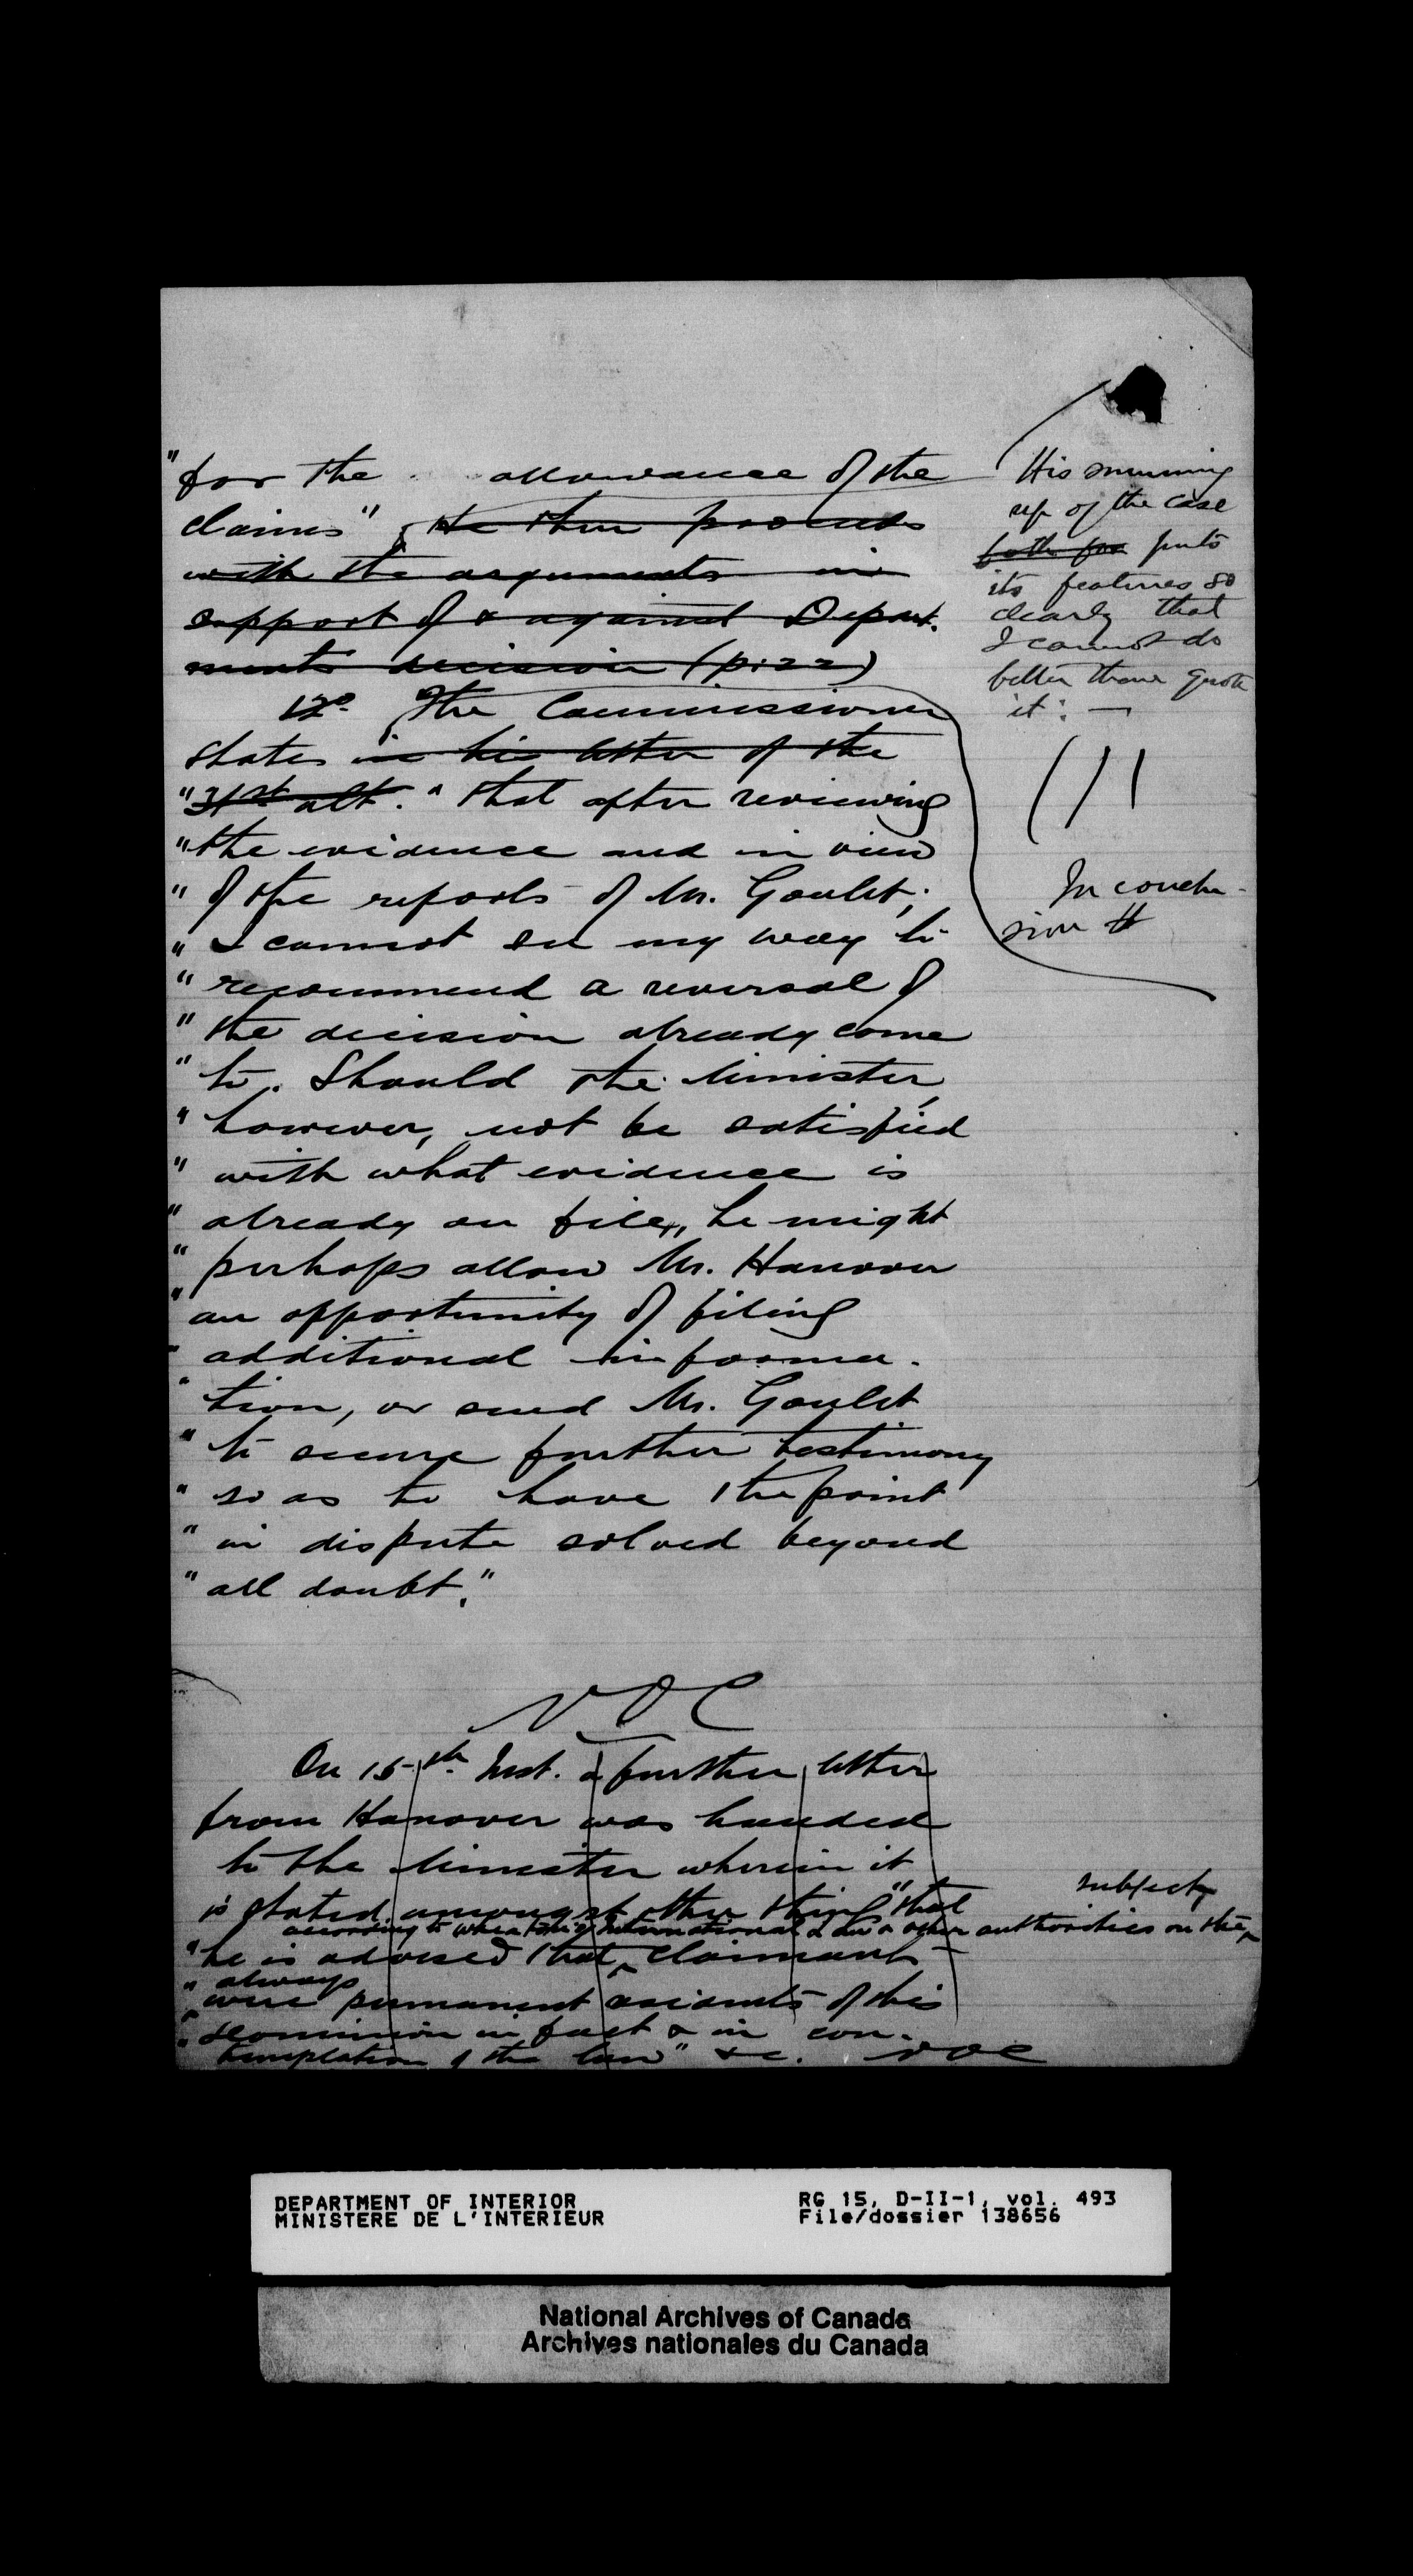 "for the allowance of the
claims" He then proceeds
with the arguments in
support of & against Depart.
ments decision (p. 22)
His summing
up of the case
puts
its features so
clearly that
I cannot do
better than quote
it: —
12º The Commissioner
states in his letter of the
"31st ult." that after reviewing
"the evidence and in view
"of the reports of Mr. Goulet,
"I cannot see my way to
"recommend a reversal of
"the decision already come
"to. Should the Minister,
"however, not be satisfied
"with what evidence is
"already on file, he might
"perhaps allow Mr. Hanover
"an opportunity of filing
"additional informa-
"tion, or send Mr. Goulet
"to secure further testimony
"so as to have the point
"in dispute solved beyond
"all doubt."
In conclu-
sion
On 15th Inst. a further letter
from Hanover was handed
to the Minister wherein it
is stated amongst other things "that
subject
according to International law & other authorities on the
"he is advised that claimants
"always
"were permanent residents of this
"Dominion in fact & in con-
"templation of the law" &c.
DEPARTMENT OF INTERIOR
MINISTERE DE L'INTERIEUR
RG 15, D-II-1, vol. 493
File/dossier 138656
National Archives of Canada
Archives nationales du Canada